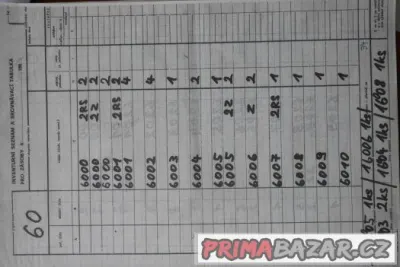 INVENTURNÍ SEZNAM A SROVNÁVACÍ TABULKA
PRO ZÁSOBY
60
6000 2RS 2
6000 2Z 2
6000 2
6001 2RS 2
6001 4
6002 4
6003 1
6004 2
6005 2
6005 2Z 2
6006 Z 2
6007 2RS 1
6008 1
6009 1
6010 1
05 1ks / 16006 1ks/
03 2ks / 1604 1ks / 1608 1ks
PRIMABAZAR.CZ